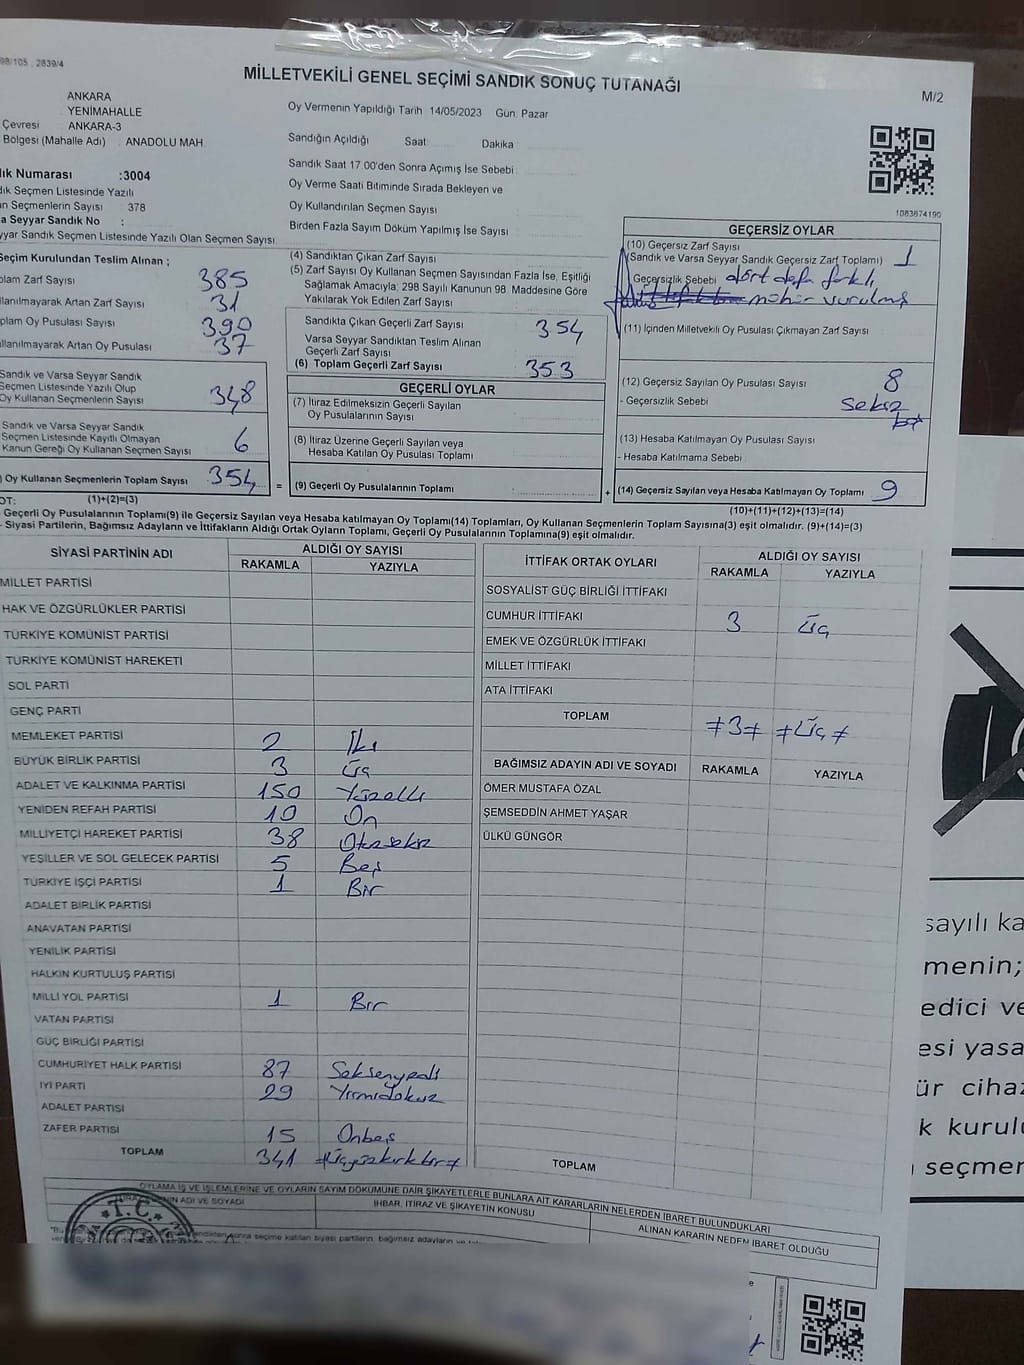 98/105 2839/4
MİLLETVEKİLİ GENEL SEÇİMİ SANDIK SONUÇ TUTANAĞI
M/2
ANKARA
YENİMAHALLE
Çevresi ANKARA-3
Bölgesi (Mahalle Adı) ANADOLU MAH.
Numarası :3004
Seçmen Listesinde Yazılı
Seçmenlerin Sayısı 378
Seyyar Sandık No :
Sandık Seçmen Listesinde Yazılı Olan Seçmen Sayısı
Oy Vermenin Yapıldığı Tarih 14/05/2023 Gün: Pazar
Sandığın Açıldığı Saat Dakika
Sandık Saat 17:00'den Sonra Açımış İse Sebebi
Oy Verme Saati Bitiminde Sırada Bekleyen ve
Oy Kullandırılan Seçmen Sayısı
Birden Fazla Sayım Döküm Yapılmış İse Sayısı
1083674190
Seçim Kurulundan Teslim Alınan ;
Zarf Sayısı 385
Artan Zarf Sayısı 31
Oy Pusulası Sayısı 390
Artan Oy Pusulası 37
Sandık ve Varsa Seyyar Sandık
Seçmen Listesinde Yazılı Olup
Oy Kullanan Seçmenlerin Sayısı 348
Sandık ve Varsa Seyyar Sandık
Seçmen Listesinde Kayıtlı Olmayan
Kanun Gereği Oy Kullanan Seçmen Sayısı 6
Oy Kullanan Seçmenlerin Toplam Sayısı 354
(1)+(2)=(3)
(4) Sandıktan Çıkan Zarf Sayısı
(5) Zarf Sayısı Oy Kullanan Seçmen Sayısından Fazla İse, Eşitliği
Sağlamak Amacıyla; 298 Sayılı Kanunun 98. Maddesine Göre
Yakılarak Yok Edilen Zarf Sayısı
Sandıkta Çıkan Geçerli Zarf Sayısı 354
Varsa Seyyar Sandıktan Teslim Alınan
Geçerli Zarf Sayısı
(6) Toplam Geçerli Zarf Sayısı 353
GEÇERLİ OYLAR
(7) İtiraz Edilmeksizin Geçerli Sayılan
Oy Pusulalarının Sayısı
(8) İtiraz Üzerine Geçerli Sayılan veya
Hesaba Katılan Oy Pusulası Toplamı
= (9) Geçerli Oy Pusulalarının Toplamı +
GEÇERSİZ OYLAR
(10) Geçersiz Zarf Sayısı
(Sandık ve Varsa Seyyar Sandık Geçersiz Zarf Toplamı) 1
Geçersizlik Sebebi dört defa farklı
mühür vurulmuş
(11) İçinden Milletvekili Oy Pusulası Çıkmayan Zarf Sayısı
(12) Geçersiz Sayılan Oy Pusulası Sayısı 8
- Geçersizlik Sebebi sekiz
(13) Hesaba Katılmayan Oy Pusulası Sayısı
- Hesaba Katılmama Sebebi
(14) Geçersiz Sayılan veya Hesaba Katılmayan Oy Toplamı 9
(10)+(11)+(12)+(13)=(14)
Geçerli Oy Pusulalarının Toplamı(9) ile Geçersiz Sayılan veya Hesaba katılmayan Oy Toplamı(14) Toplamları, Oy Kullanan Seçmenlerin Toplam Sayısına(3) eşit olmalıdır. (9)+(14)=(3)
- Siyasi Partilerin, Bağımsız Adayların ve İttifakların Aldığı Ortak Oyların Toplamı, Geçerli Oy Pusulalarının Toplamına(9) eşit olmalıdır.
SİYASİ PARTİNİN ADI ALDIĞI OY SAYISI
RAKAMLA YAZIYLA
MİLLET PARTİSİ
HAK VE ÖZGÜRLÜKLER PARTİSİ
TÜRKİYE KOMÜNİST PARTİSİ
TÜRKİYE KOMÜNİST HAREKETİ
SOL PARTİ
GENÇ PARTİ
MEMLEKET PARTİSİ 2 İki
BÜYÜK BİRLİK PARTİSİ 3 Üç
ADALET VE KALKINMA PARTİSİ 150 Yüzelli
YENİDEN REFAH PARTİSİ 10 On
MİLLİYETÇİ HAREKET PARTİSİ 38 Otuzsekiz
YEŞİLLER VE SOL GELECEK PARTİSİ 5 Beş
TÜRKİYE İŞÇİ PARTİSİ 1 Bir
ADALET BİRLİK PARTİSİ
ANAVATAN PARTİSİ
YENİLİK PARTİSİ
HALKIN KURTULUŞ PARTİSİ
MİLLİ YOL PARTİSİ 1 Bir
VATAN PARTİSİ
GÜÇ BİRLİĞİ PARTİSİ
CUMHURİYET HALK PARTİSİ 87 Seksenyedi
İYİ PARTİ 29 Yirmidokuz
ADALET PARTİSİ
ZAFER PARTİSİ 15 Onbeş
TOPLAM 341 ≠Üçyüzkırkbir≠
İTTİFAK ORTAK OYLARI ALDIĞI OY SAYISI
RAKAMLA YAZIYLA
SOSYALİST GÜÇ BİRLİĞİ İTTİFAKI
CUMHUR İTTİFAKI 3 Üç
EMEK VE ÖZGÜRLÜK İTTİFAKI
MİLLET İTTİFAKI
ATA İTTİFAKI
TOPLAM ≠3≠ ≠Üç≠
BAĞIMSIZ ADAYIN ADI VE SOYADI RAKAMLA YAZIYLA
ÖMER MUSTAFA ÖZAL
ŞEMSEDDİN AHMET YAŞAR
ÜLKÜ GÜNGÖR
TOPLAM
OYLAMA İŞ VE İŞLEMLERİNE VE OYLARIN SAYIM DÖKÜMÜNE DAİR ŞİKAYETLERLE BUNLARA AİT KARARLARIN NELERDEN İBARET BULUNDUKLARI
ADI VE SOYADI İHBAR, İTİRAZ VE ŞİKAYETİN KONUSU ALINAN KARARIN NEDEN İBARET OLDUĞU
T.C.
sayılı ka
menin;
edici ve
esi yasa
ür cihaz
k kurulu
seçmen